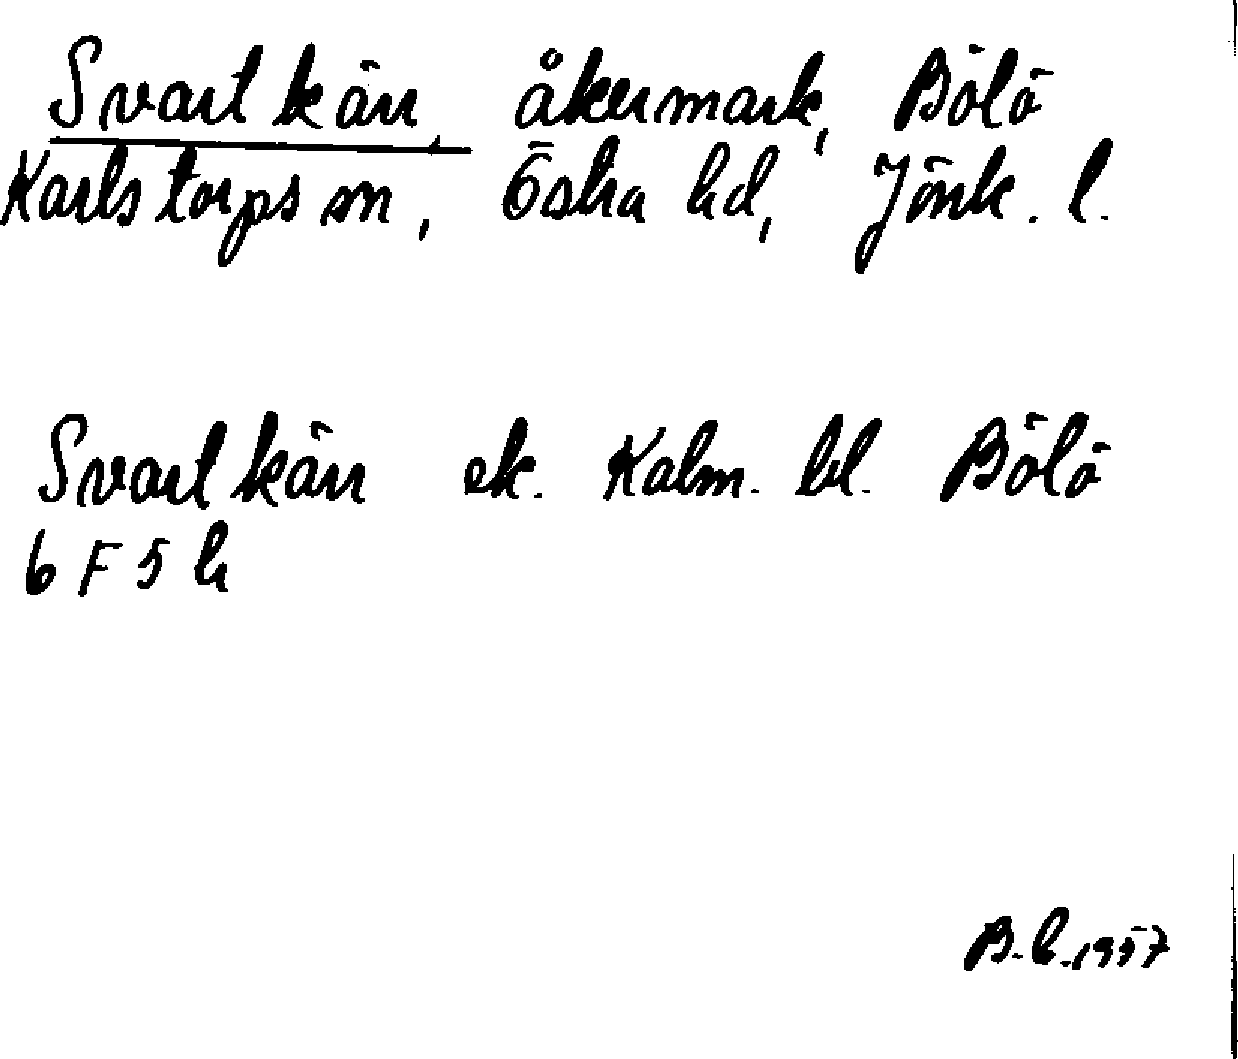 Svartkärr, åkermark, Bölö
Karlstorps sn, Östra hd, Jönk. l.
Svartkärr ek. Kalm. bl. Bölö
6 F 5 h
1957